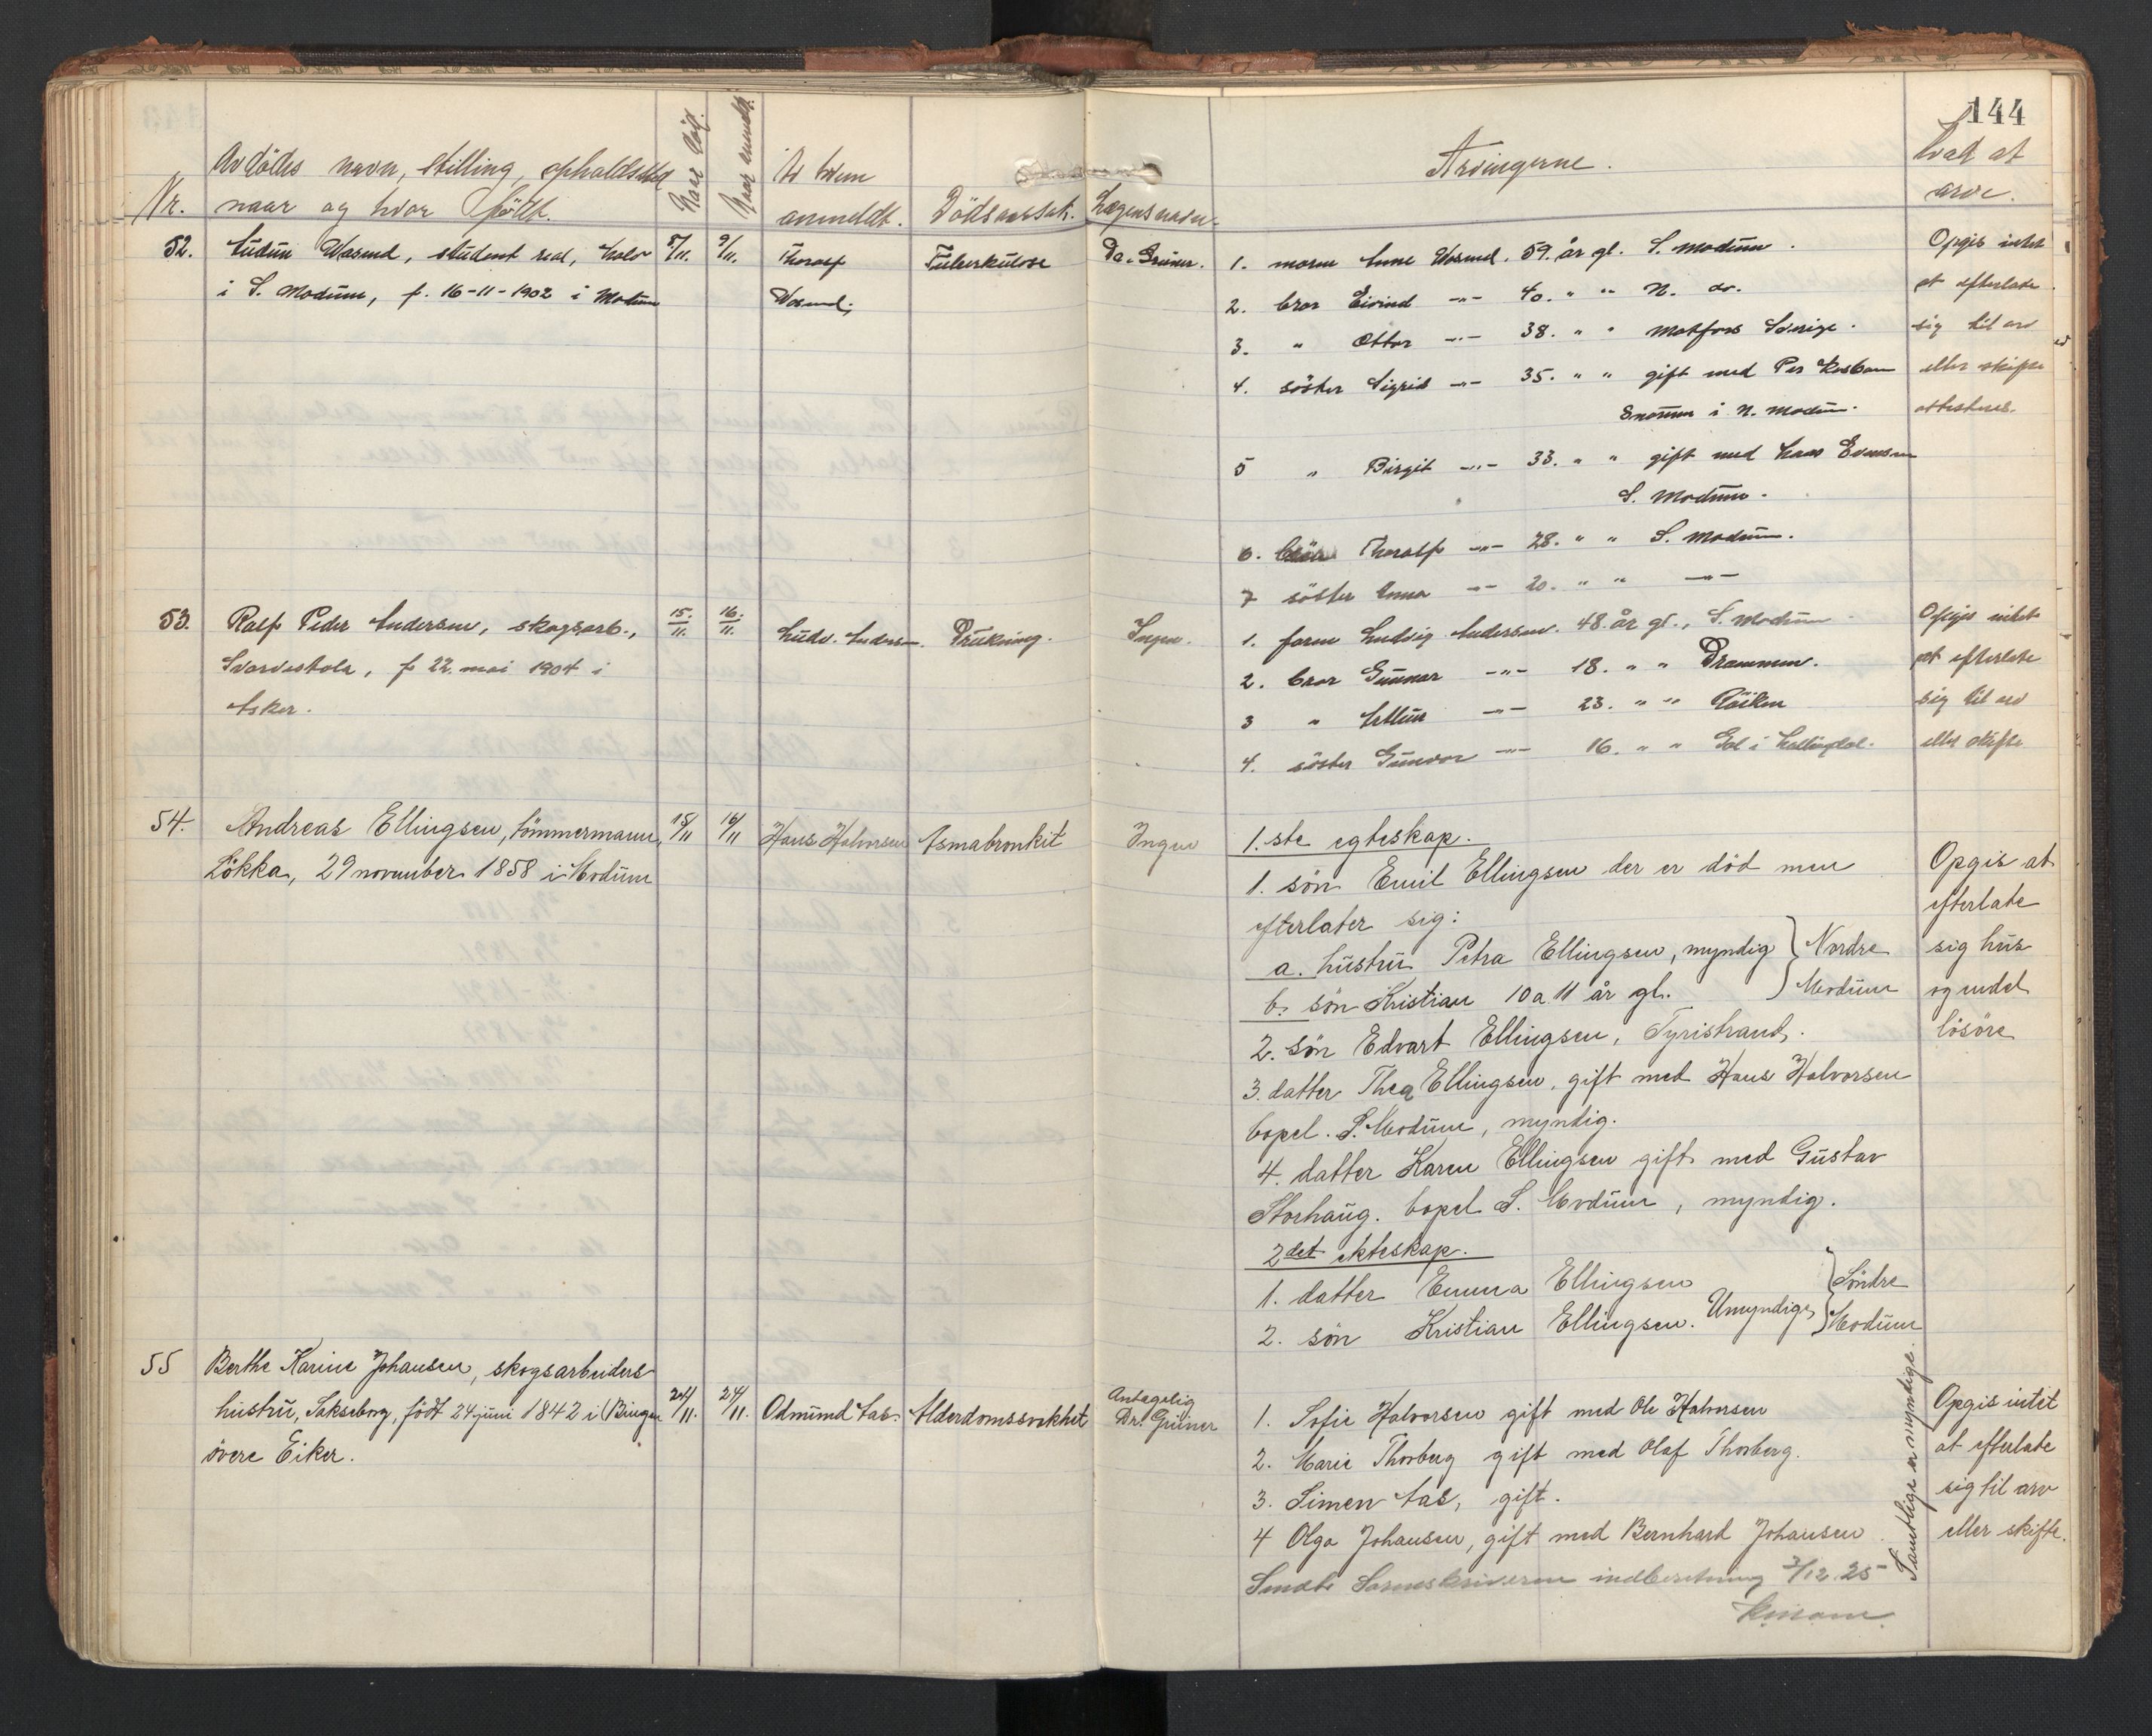 144
Nr. Avdödes navn, stilling, opholdssted naar og hvor født.
Naar död.
Naar anmeldt.
Av hvem anmeldt.
Dödsaarsak.
Lægens navn.
Arvingerne.
Hvad at arve.
52. Audun Wasend, student real,
i S. Modum, f. 16-11-1902 i Modum
5/11. 9/11.
Thoralf
Tuberkulose
Dr. Grüner.
1. moren Anne 59. år gl. S. Modum.
2. bror Eivind -"- 40. " " N. do.
3. " Ottar -"- 38. " " Matfors Sverige.
4. söster Sigrid -"- 35. " " gift med Per
i N. Modum.
5 " Birgit -"- 33. " " gift med Hans Evensen
S. Modum.
6. bror Thoralf -"- 28. " " S. Modum.
7 söster Anna -"- 20. " " -"-
Opgis intet
at efterlate
sig til arv
eller skifte
attesteres.
53. Ralf Peder Andersen, skogsarb.,
f 22. mai 1904 i
Asker.
15./11. 16./11.
Ludv. Andersen.
Drukning.
Ingen.
1. faren Ludvig Andersen. 48. år gl., S. Modum
2. bror Gunnar -"- 18. " " Drammen.
3 " Arthur -"- 23. " " Röiken
4. söster Gunvor -"- 16. " " Gol i Hallingdal.
Opgis intet
at efterlate
sig til arv
eller skifte
54. Andreas Ellingsen, tömmermann,
Lökka, 29 november 1858 i Modum
15/11 16/11
Hans Halvorsen
Asmabronkit
Ingen
1.ste egteskap.
1. sön Emil Ellingsen der er död men
efterlater sig:
a. hustru Petra Ellingsen, myndig } Nordre
b. sön Kristian 10 a 11 år gl. } Modum
2. sön Edvart Ellingsen, Tyristrand.
3. datter Thea Ellingsen, gift med Hans Halvorsen
bopel. S. Modum, myndig.
4. datter Karen Ellingsen gift med Gustav
Storhaug. bopel S. Modum, myndig.
2det ekteskap.
1. datter Emma Ellingsen } Söndre
2. sön Kristian Ellingsen. Umyndige } Modum
Opgis at
efterlate
sig hus
og endel
lösöre
55 Berthe Karine Johansen, skogsarbeiders
hustru, Sakseborg, födt 24 juni 1842 i Bingen
övere Eiker.
21/11. 24/11.
Odmund Aas.
Alderdomssvakhet
Antagelig
Dr. Grüner
1. Sofie Halvorsen gift med Ole Halvorsen
2. Marie Thorberg gift med Olaf Thorberg.
3. Simen Aas, gift.
4 Olga Johansen, gift med Bernhard Johansen.
Samtlige er myndige.
Opgis intet
at efterlate
sig til arv
eller skifte.
Sendt Sorenskriveren indberetning 7/12 25